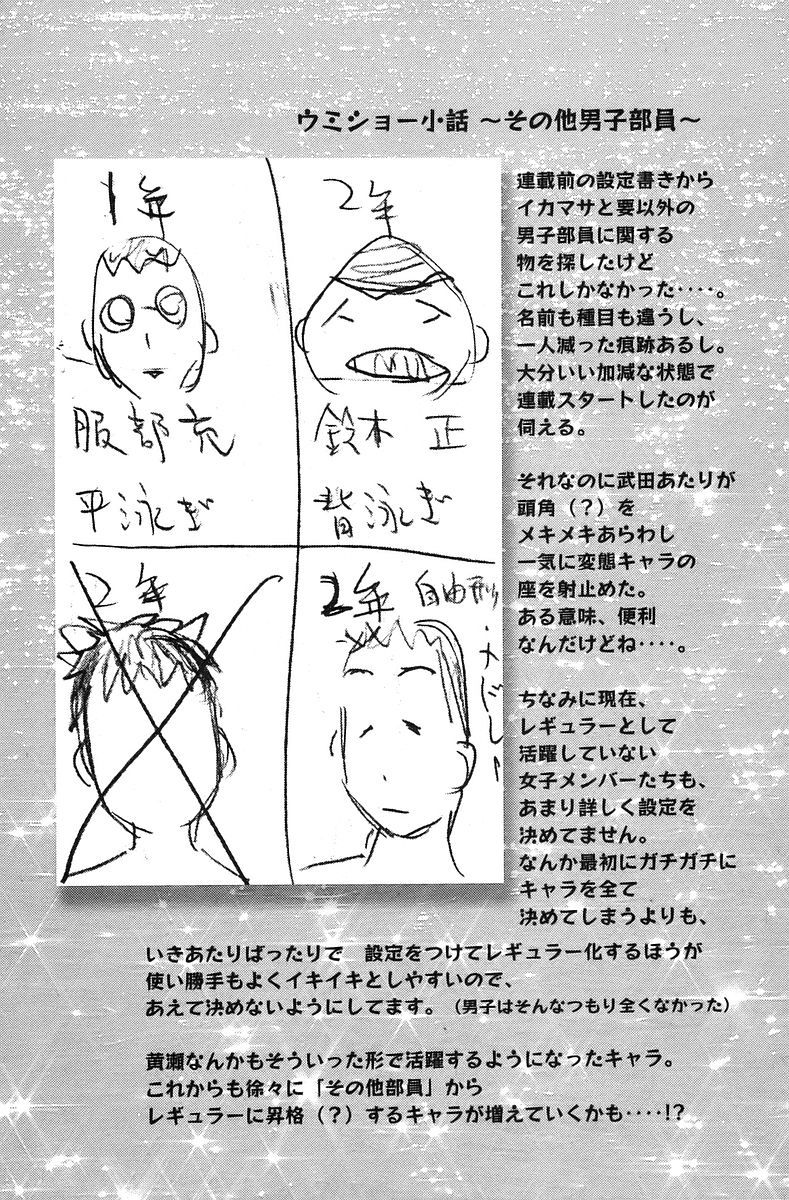 ウミショー小話 〜その他男子部員〜
1年
服部 充
平泳ぎ
2年
鈴木 正
背泳ぎ
2年
2年 自由形
連載前の設定書きから
イカマサと要以外の
男子部員に関する
物を探したけど
これしかなかった‥‥。
名前も種目も違うし、
一人減った痕跡あるし。
大分いい加減な状態で
連載スタートしたのが
伺える。
それなのに武田あたりが
頭角（？）を
メキメキあらわし
一気に変態キャラの
座を射止めた。
ある意味、便利
なんだけどね‥‥。
ちなみに現在、
レギュラーとして
活躍していない
女子メンバーたちも、
あまり詳しく設定を
決めてません。
なんか最初にガチガチに
キャラを全て
決めてしまうよりも、
いきあたりばったりで　設定をつけてレギュラー化するほうが
使い勝手もよくイキイキとしやすいので、
あえて決めないようにしてます。（男子はそんなつもり全くなかった）
黄瀬なんかもそういった形で活躍するようになったキャラ。
これからも徐々に「その他部員」から
レギュラーに昇格（？）するキャラが増えていくかも‥‥!?